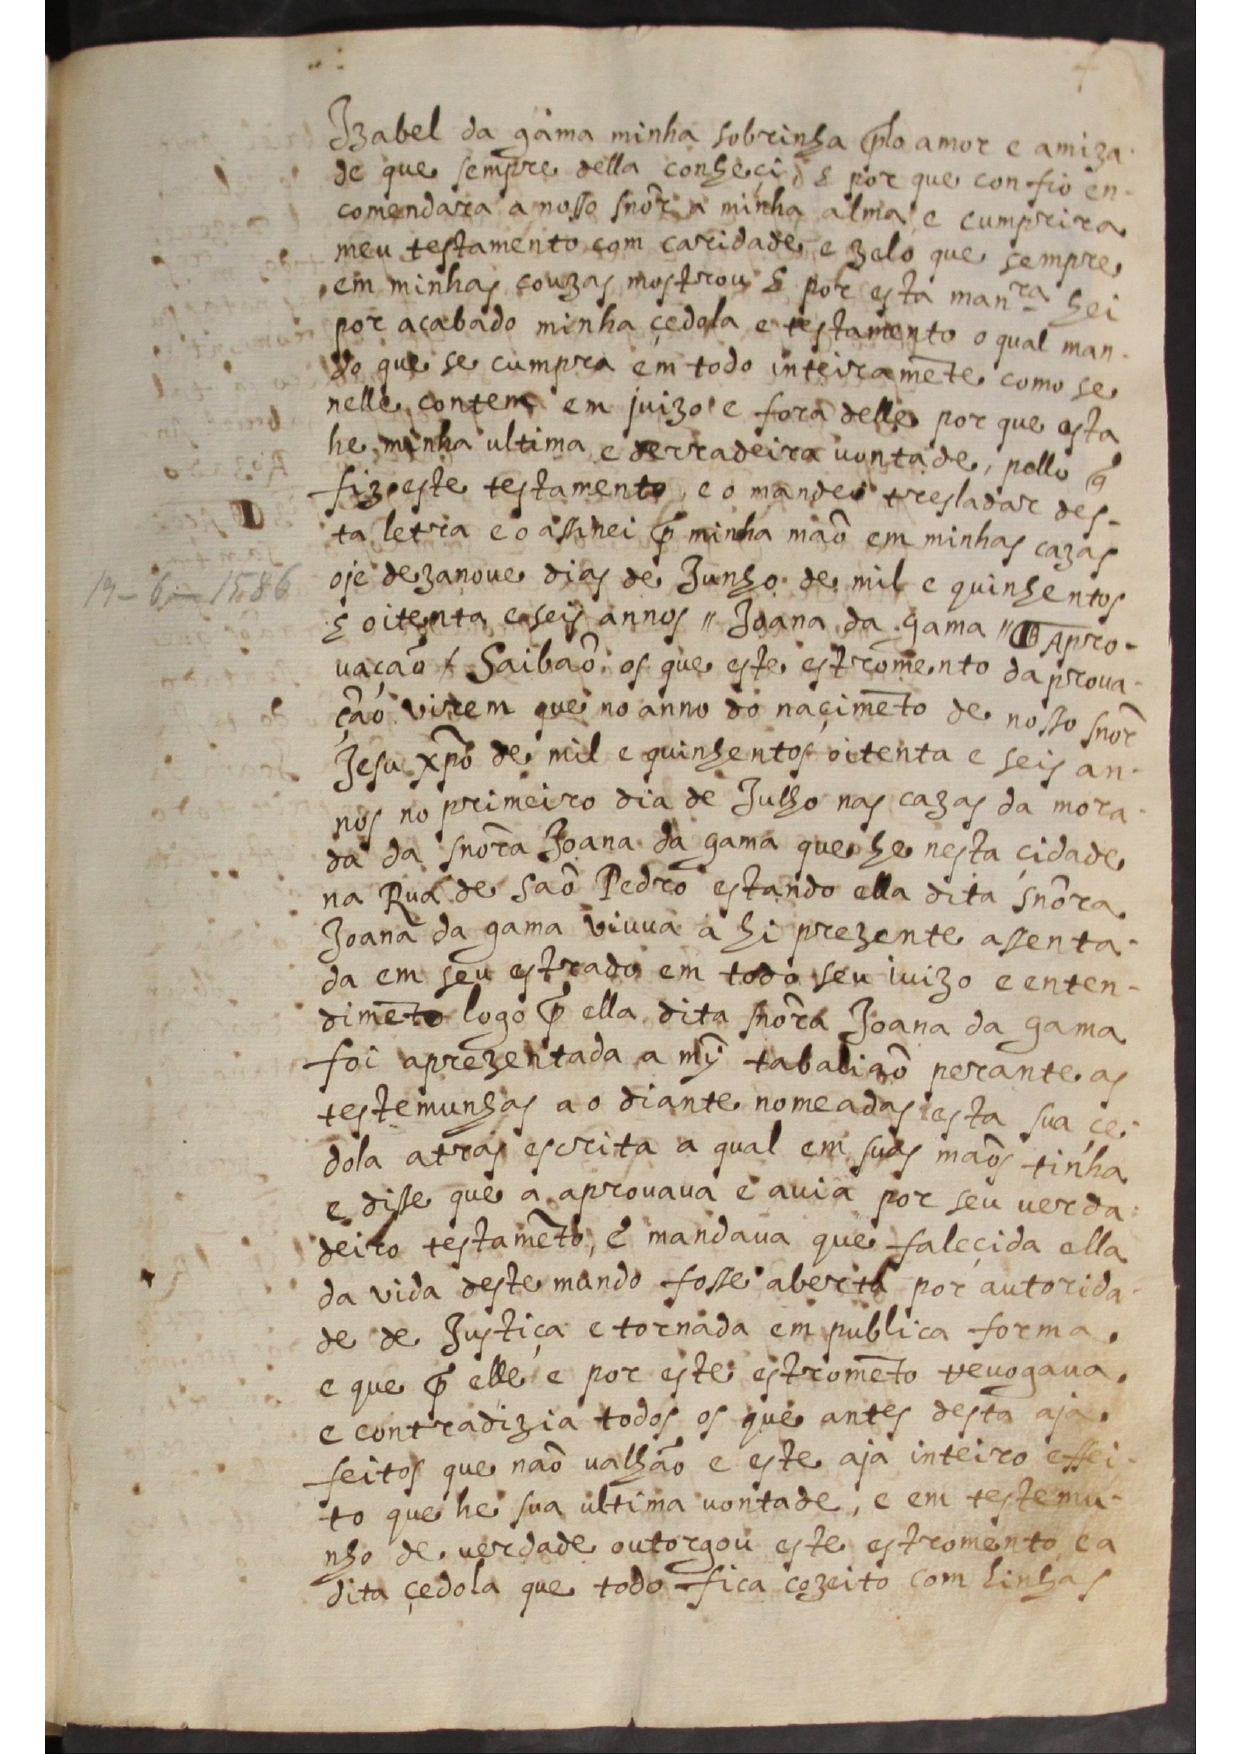 Izabel da gama minha sobrinha plo amor e amiza-
de que sempre della conheçi, & por que confio en-
comendara a nosso snõr a minha alma e cumprira
meu testamento com caridade e zelo que sempre
em minhas couzas mostrou & por esta man.ra hei
por acabado minha çedola e testamento o qual man-
do que se cumpra em todo inteiramẽte como se
nelle contem em juizo e fora delle por que esta
he minha ultima e derradeira uontade, pello q̃
fiz este testamento, e o mandei tresladar des-
ta letra e o assinei p minha maõ em minhas cazas
19-6-1586
oje dezanoue dias de Junho de mil e quinhentos
& oitenta e seis annos // Joana da gama // Apro-
uaçaõ / Saibaõ os que este estromento da proua-
çaõ virem que no anno do naçimẽto de nosso snõr
Jesu xpõ de mil e quinhentos oitenta e seis an-
nos no primeiro dia de Julho nas cazas da mora-
da da snõra Joana da gama que he nesta cidade
na Rua de saõ Pedro estando ella dita snõra
Joana da gama viuua a hi prezente assenta-
da em seu estrado em todo seu iuizo e enten-
dimẽto logo p ella dita snõra Joana da gama
foi aprezentada a mỹ tabaliaõ perante as
testemunhas ao diante nomeadas esta sua çe-
dola atras escrita a qual em suas maõs tinha
e disse que a aprouaua e auia por seu uerda-
deiro testamẽto, e mandaua que faleçida ella
da vida deste mundo fosse aberta por autorida-
de de Justiça e tornada em publica forma
e que p elle e por este estromẽto reuogaua
e contradizia todos os que antes desta aja
feitos que naõ ualhaõ e este aja inteiro effei-
to que he sua ultima uontade, e em testemu-
nho de uerdade outorgou este estromento e a
dita çedola que todo fica cozeito com linhas